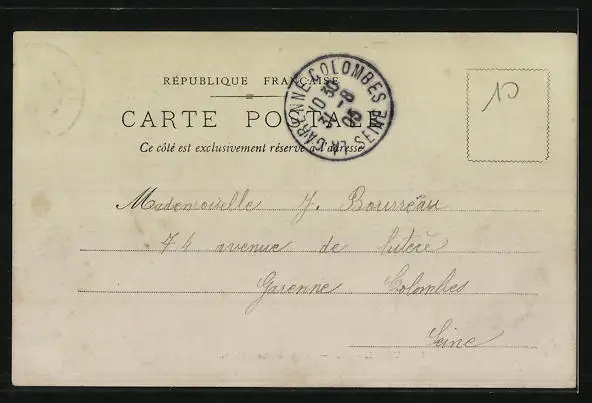 RÉPUBLIQUE FRANÇAISE
CARTE POSTALE
Ce côté est exclusivement réservé à l'adresse
LA GARENNE-COLOMBES
10 30
3 -8
05
SEINE
10
Mademoiselle J. Bourreau
74 avenue de lutèce
Garenne Colombes
Seine